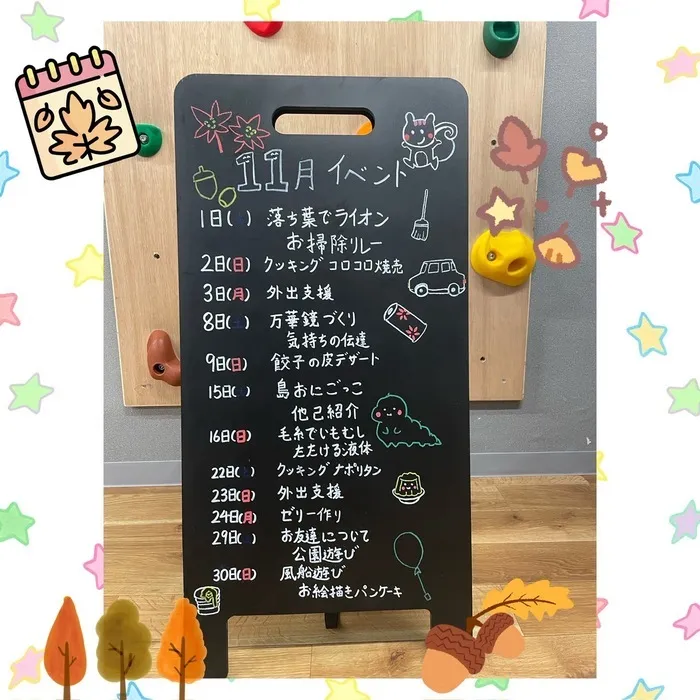 11月 イベント
1日(土) 落ち葉でライオン
お掃除リレー
2日(日) クッキングコロコロ焼売
3日(月) 外出支援
8日(土) 万華鏡づくり
気持ちの伝達
9日(日) 餃子の皮デザート
15日(土) 島おにごっこ
他己紹介
16日(日) 毛糸でいもむし
たたける液体
22日(土) クッキングナポリタン
23日(日) 外出支援
24日(月) ゼリー作り
29日(土) お友達について
公園遊び
30日(日) 風船遊び
お絵描きパンケーキ